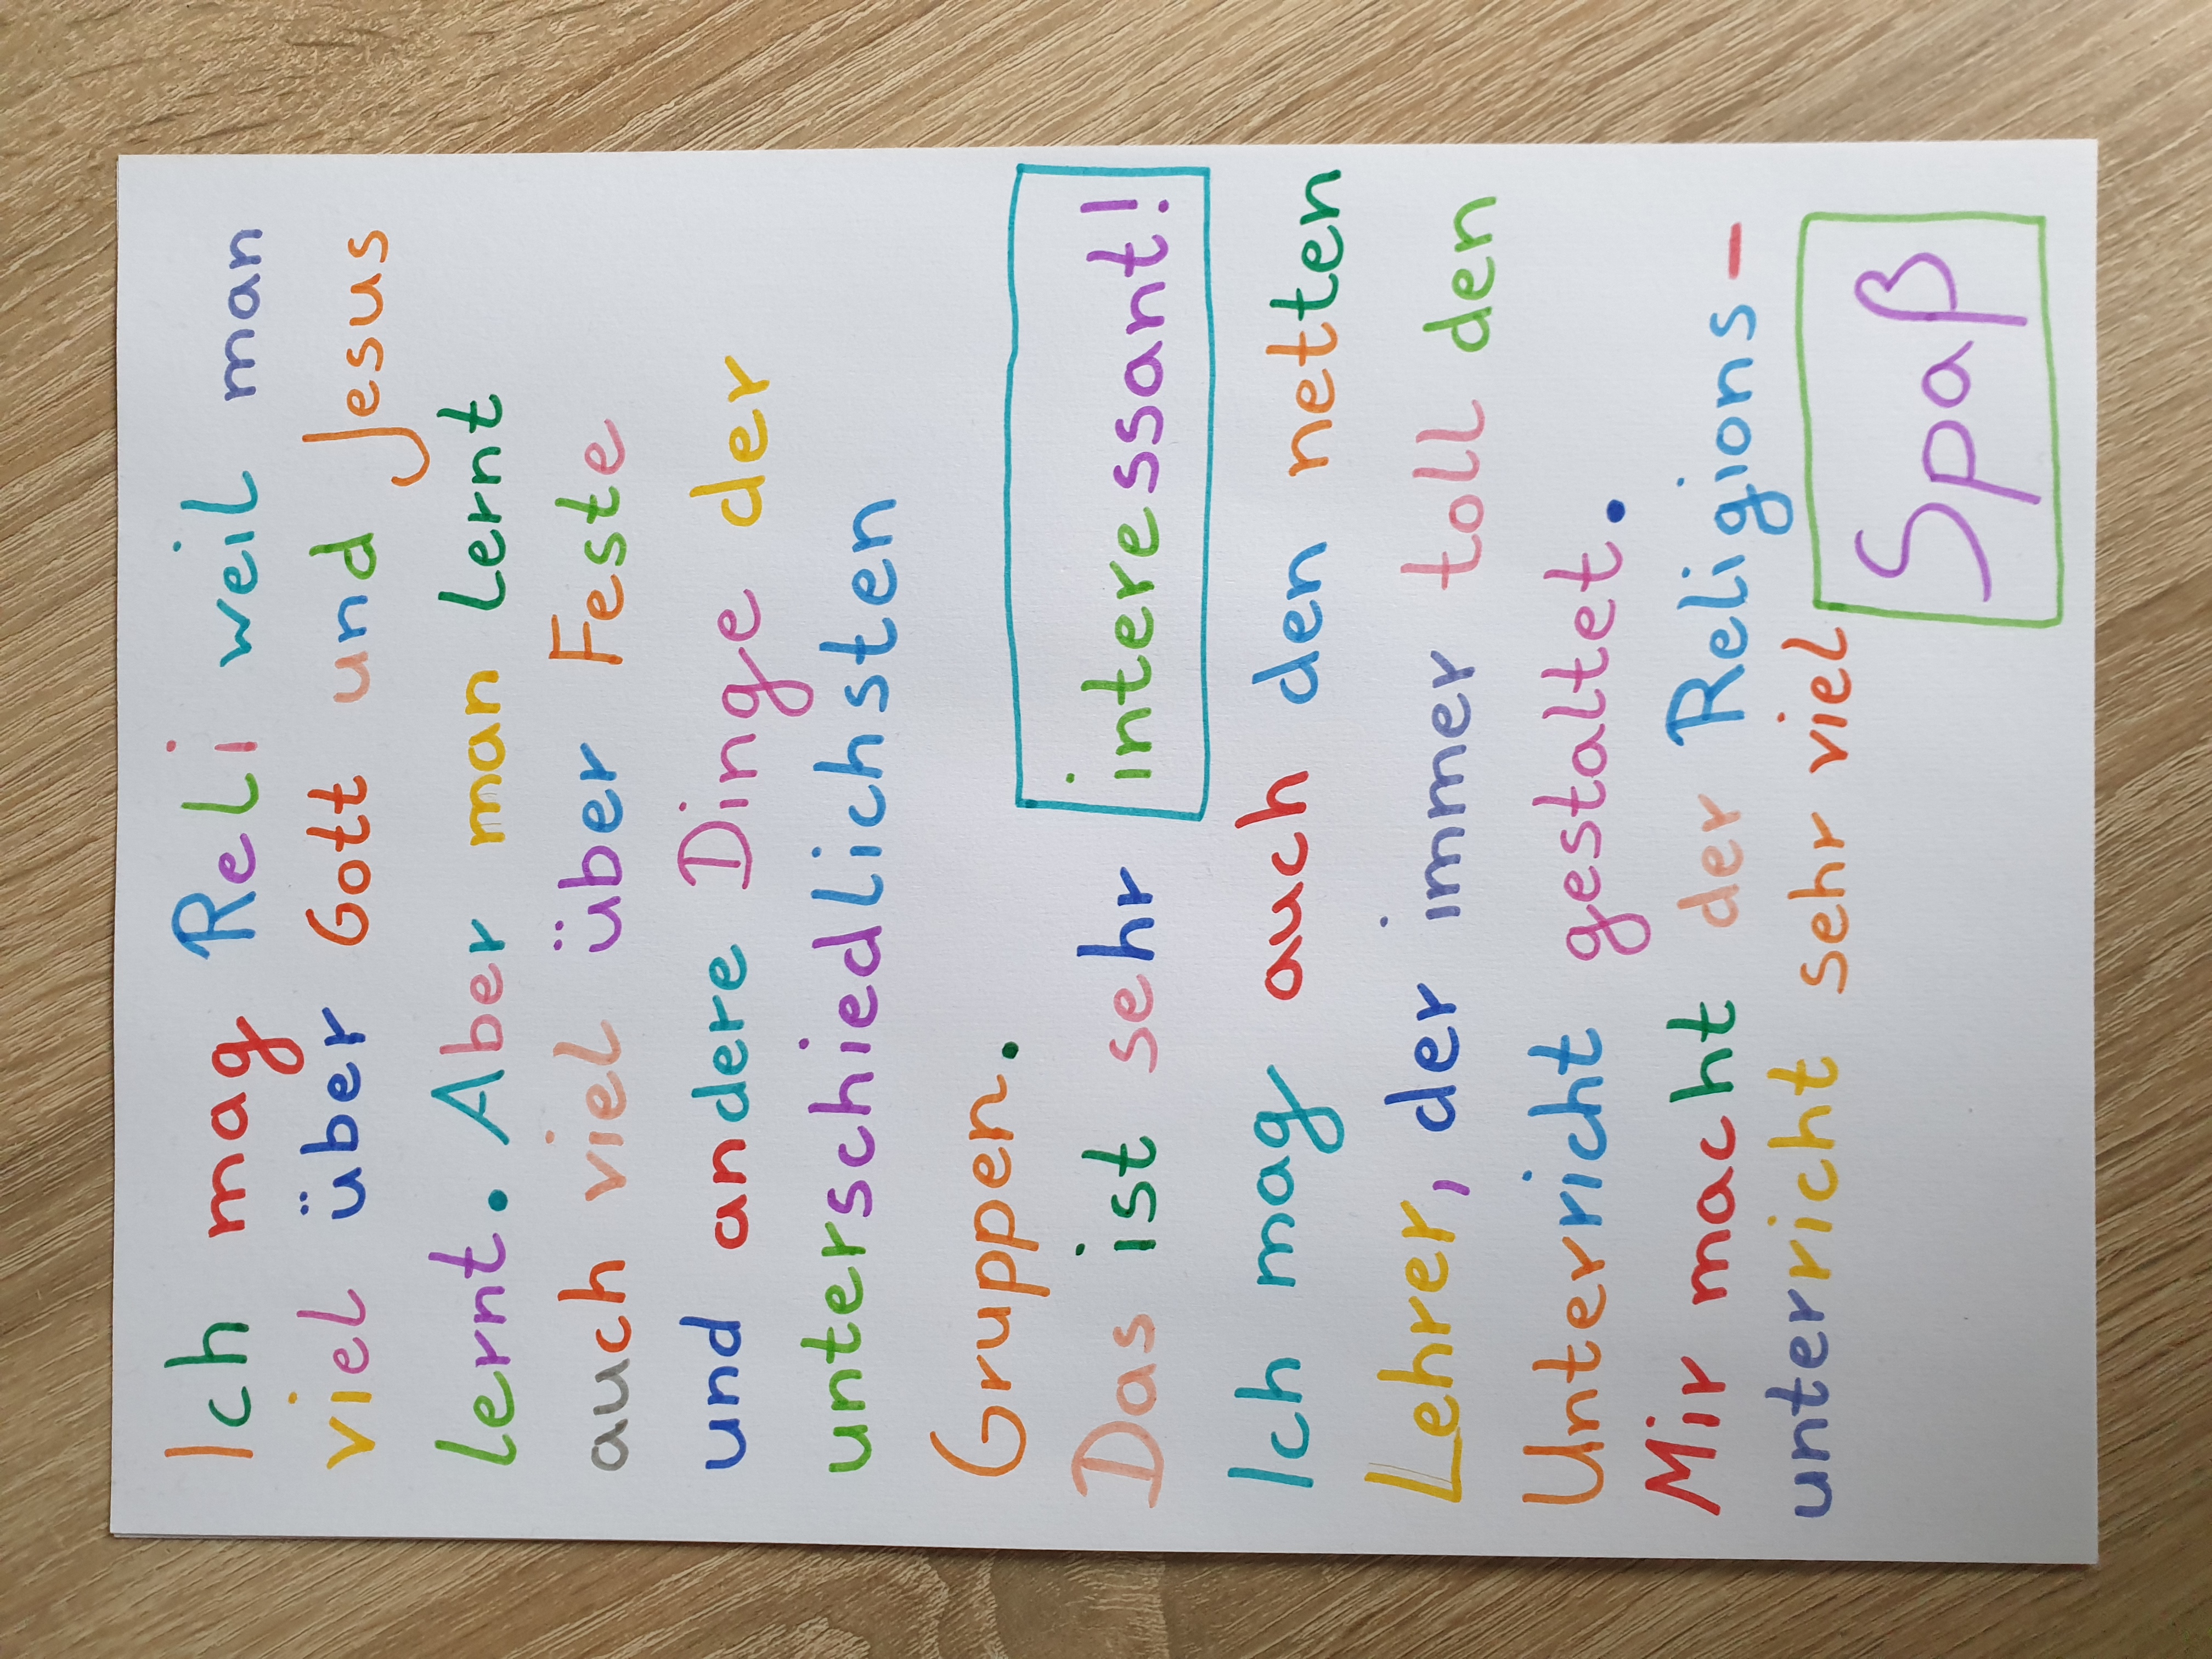 Ich mag Reli weil man
viel über Gott und Jesus
lernt. Aber man lernt
auch viel über Feste
und andere Dinge der
unterschiedlichsten
Gruppen.
Das ist sehr interessant!
Ich mag auch den netten
Lehrer, der immer toll den
Unterricht gestaltet.
Mir macht der Religions-
unterricht sehr viel
Spaß